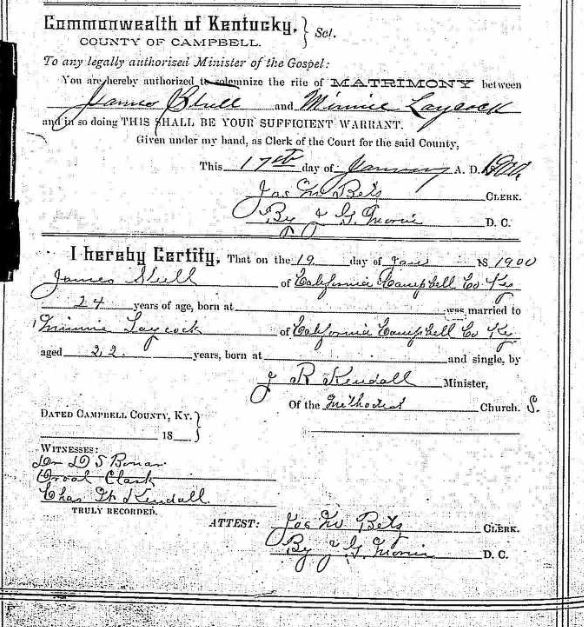 Commonwealth of Kentucky, } Sct.
COUNTY OF CAMPBELL.
To any legally authorised Minister of the Gospel:
You are hereby authorized to solemnize the rite of MATRIMONY between
James Stull and Minnie Laycock
and in so doing THIS SHALL BE YOUR SUFFICIENT WARRANT.
Given under my hand, as Clerk of the Court for the said County,
This 17th day of January A. D. 1900.
Jas M Bets CLERK.
By J G D. C.
I hereby Certify, That on the 19 day of Jan 18 1900
James Stull of California Campbell Co Ky
24 years of age, born at was married to
Minnie Laycock of California Campbell Co Ky
aged 22 years, born at and single, by
J R Kendall Minister,
Of the Methodist Church. S.
DATED CAMPBELL COUNTY, KY. }
18
WITNESSES:
D S Bonar
Clark
Chas Kendall
TRULY RECORDED.
ATTEST: Jas M Bets CLERK.
By J G D. C.